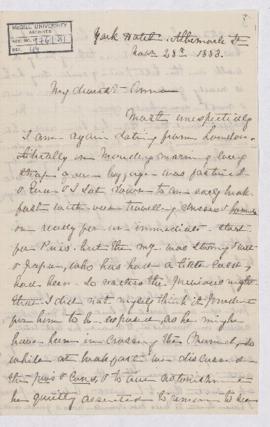 McGILL UNIVERSITY
ARCHIVES
ACC. NO.
REF.
York Hotel. Albemarle St
Nov 28th 1883.
My dearest Anna
Most unexpectedly
I am again dating from London.
Literally on Monday morning every
strap over luggage was fastened
& Eva & I sat down to an early break
fast with our travelling dresses &
on ready for an immediate start
for Paris. but the day was strong
& Jasper, who has had a little
had been so the previous night
that I did not myself think it prudent
for him to be exposed, as he might
have been in crossing the Channel, so
while at breakfast we discussed
the pros & cons, & to our astonishment
he quietly assented to remain to